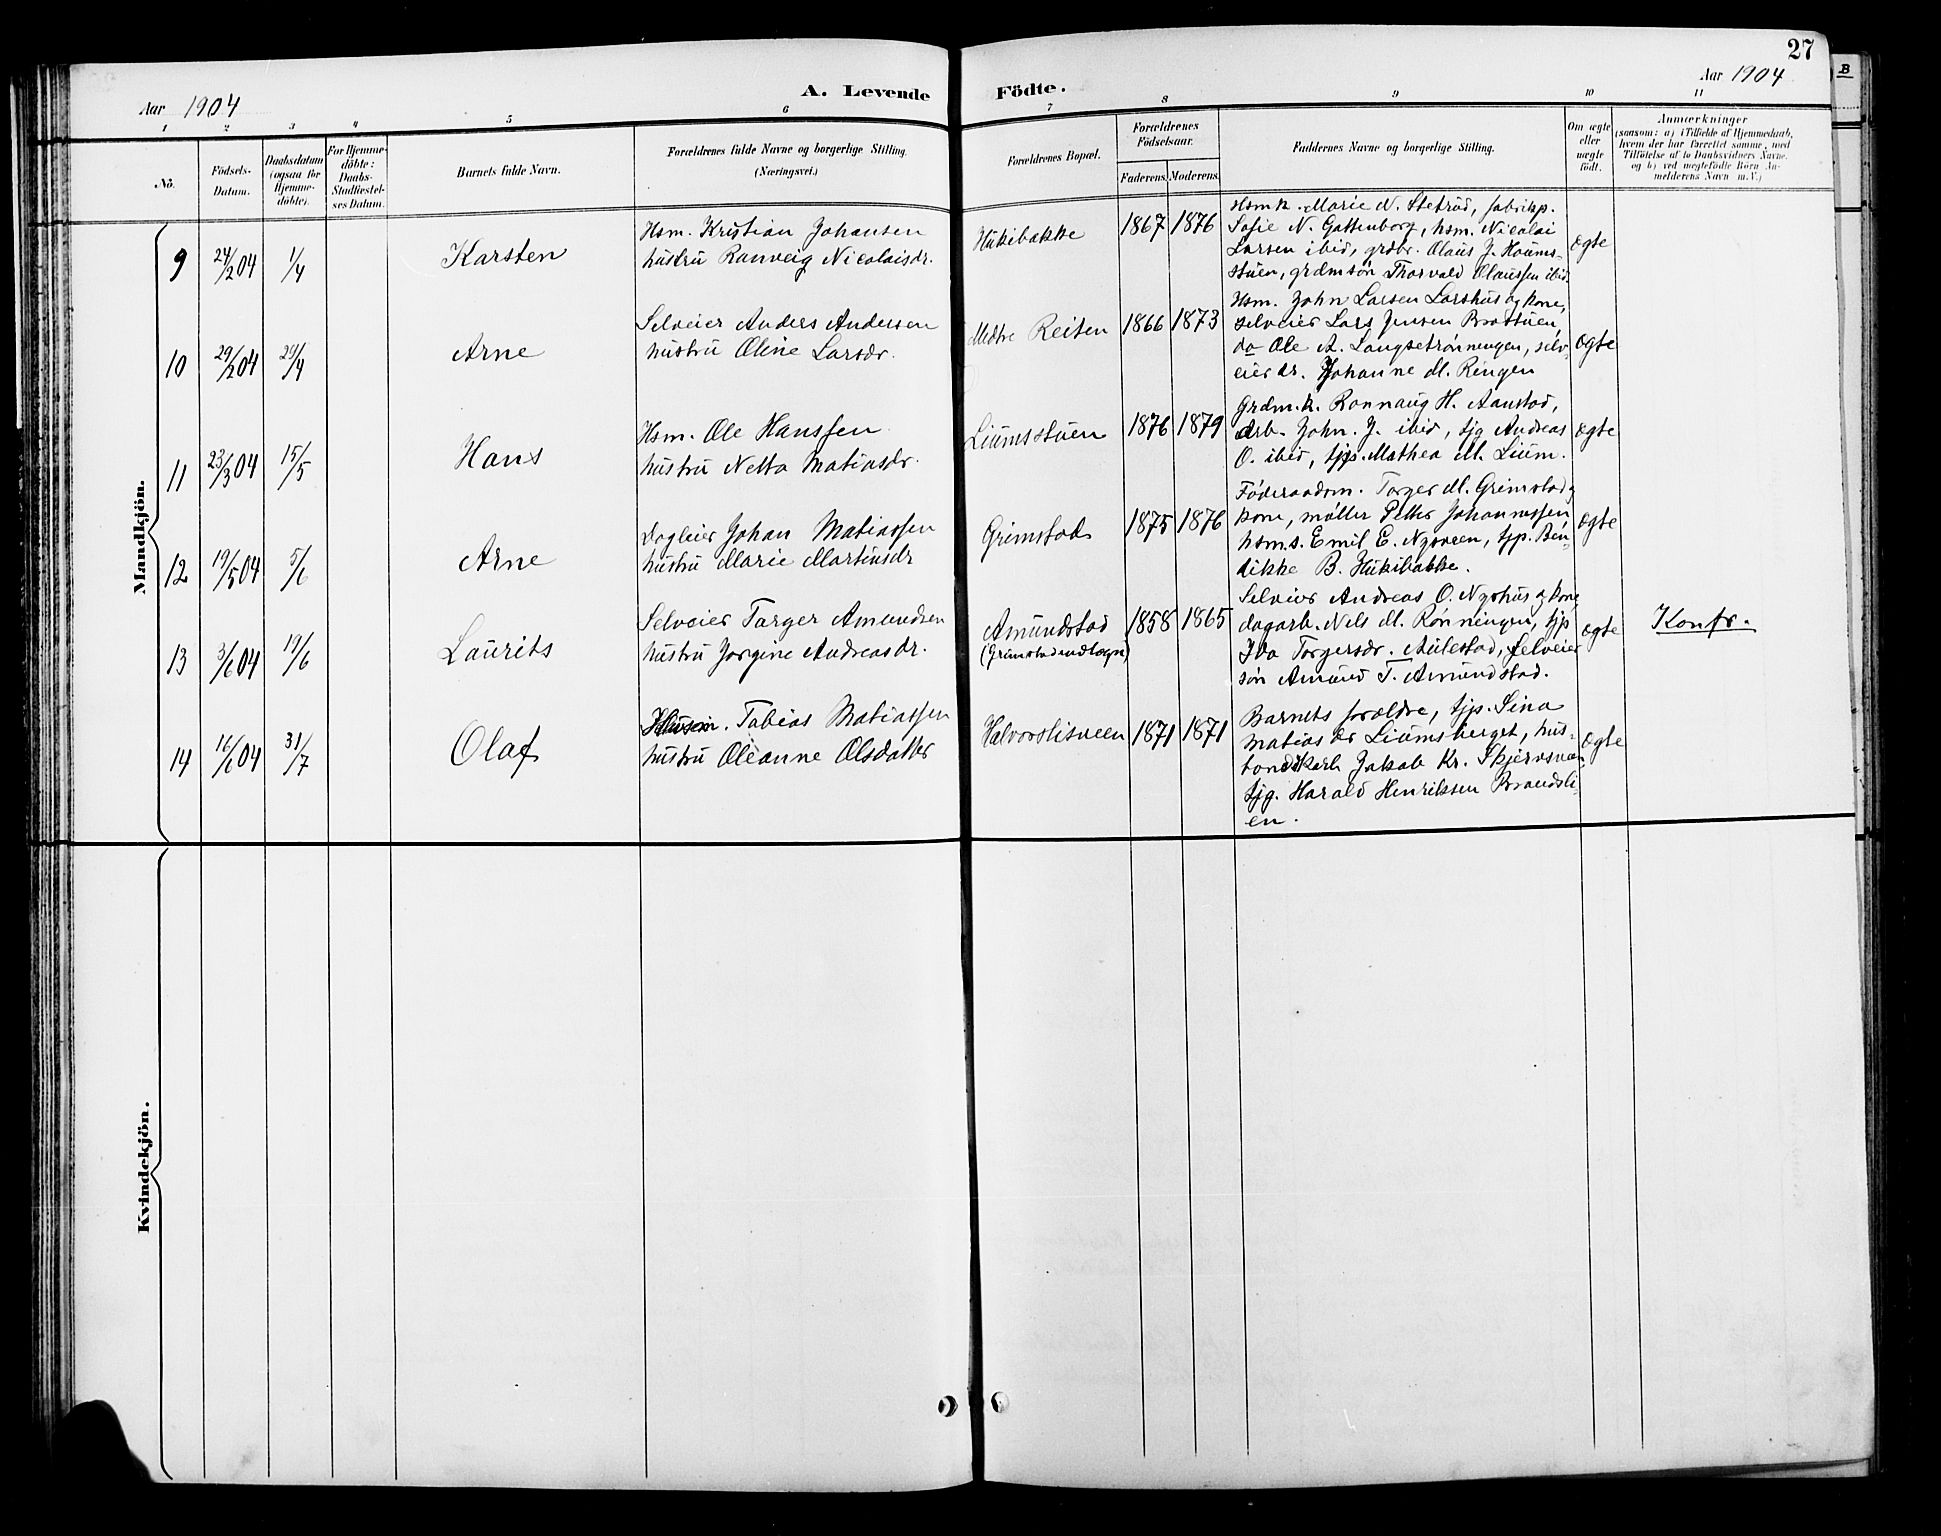 27
B
Aar 1904
A. Levende
Födte.
Aar 1904
1 2 3 4 5 6 7 8 9 10 11
No.
Födsels-
Datum.
Daabsdatum
(ogsaa for
Hjemme-
döbte).
For Hjemme-
döbte:
Daabs-
Stadfæstel-
ses Datum.
Barnets fulde Navn.
Forældrenes fulde Navne og borgerlige Stilling.
(Næringsvei.)
Forældrenes Bopæl.
Forældrenes
Födselsaar.
Faderens.
Moderens.
Faddernes Navne og borgerlige Stilling.
Om ægte
eller
uægte
födt.
Anmærkninger
(saasom: a) i Tilfælde af Hjemmedaab,
hvem der har forrettet samme, med
Tilföielse af to Daabsvidners Navne.
og b) ved uegtefödte Börn An-
melderens Navn m. V.)
Mandkjön.
9
24/2 04
1/4
Karsten
Hsm. Kristian Johansen
hustru Ranveig Nicolaisdr.
Hukibakke
1867
1876
Hsmk. Marie N. Stetrud, fabrikp.
Sofie N. Gattenborg, hsm. Nicolai
Larsen ibid, grdbr. Olaus J. Houms-
stuen, grdmsøn Thorvald Olaussen ibid.
ægte
10
29/2 04
24/4
Arne
Selveier Anders Andersen
hustru Oline Larsdr.
Medtre Reiten
1866
1873
Hsm. John Larsen Larshus og kone,
selveier Lars Jensen Brostuen,
do Ole A. Langsetrønningen, selv-
eierdr. Johanne M. Ringen
ægte
11
23/3 04
15/5
Hans
Hsm. Ole Hanssen
hustru Netta Matiasdr.
Liumsstuen
1876
1879
Grdm.k. Ronnaug H. Aanstad,
arb. John. J. ibid, tjg Andreas
O. ibid, tjp. Mathea M. Lium.
ægte
12
19/5 04
5/6
Arne
Dagleier Johan Matiassen
hustru Marie Martinsdr
Grimstad
1875
1876
Föderaadsm. Torger M. Grimstad og
kone, møller Petter Johannessen
hsm.s. Emil E. Nysveen, tjp. Ben-
dikke B. Hukibakke.
ægte
13
3/6 04
19/6
Laurits
Selveier Torger Amundsen
hustru Jorgine Andreasdr.
Amundstad
1858
1865
Selveier Andreas O. Nyshus og kone,
dagarb. Nels M. Rønningen, tjp
Ida Torgersdr. Aulestad, selveier
søn Amund T. Amundstad.
ægte
Konfr.
14
16/6 04
31/7
Olaf
Tobias Matiassen
hustru Oleanne Olsdatter
Halvorslisveen
1871
1871
Barnets forældre, tjp. Sina
Matiasdr Liumsberget, hus-
bondskarl Jakob Kr. Skjervsveen
tjg. Harald Henriksen Brandsli-
en.
ægte
Kvindekjön.